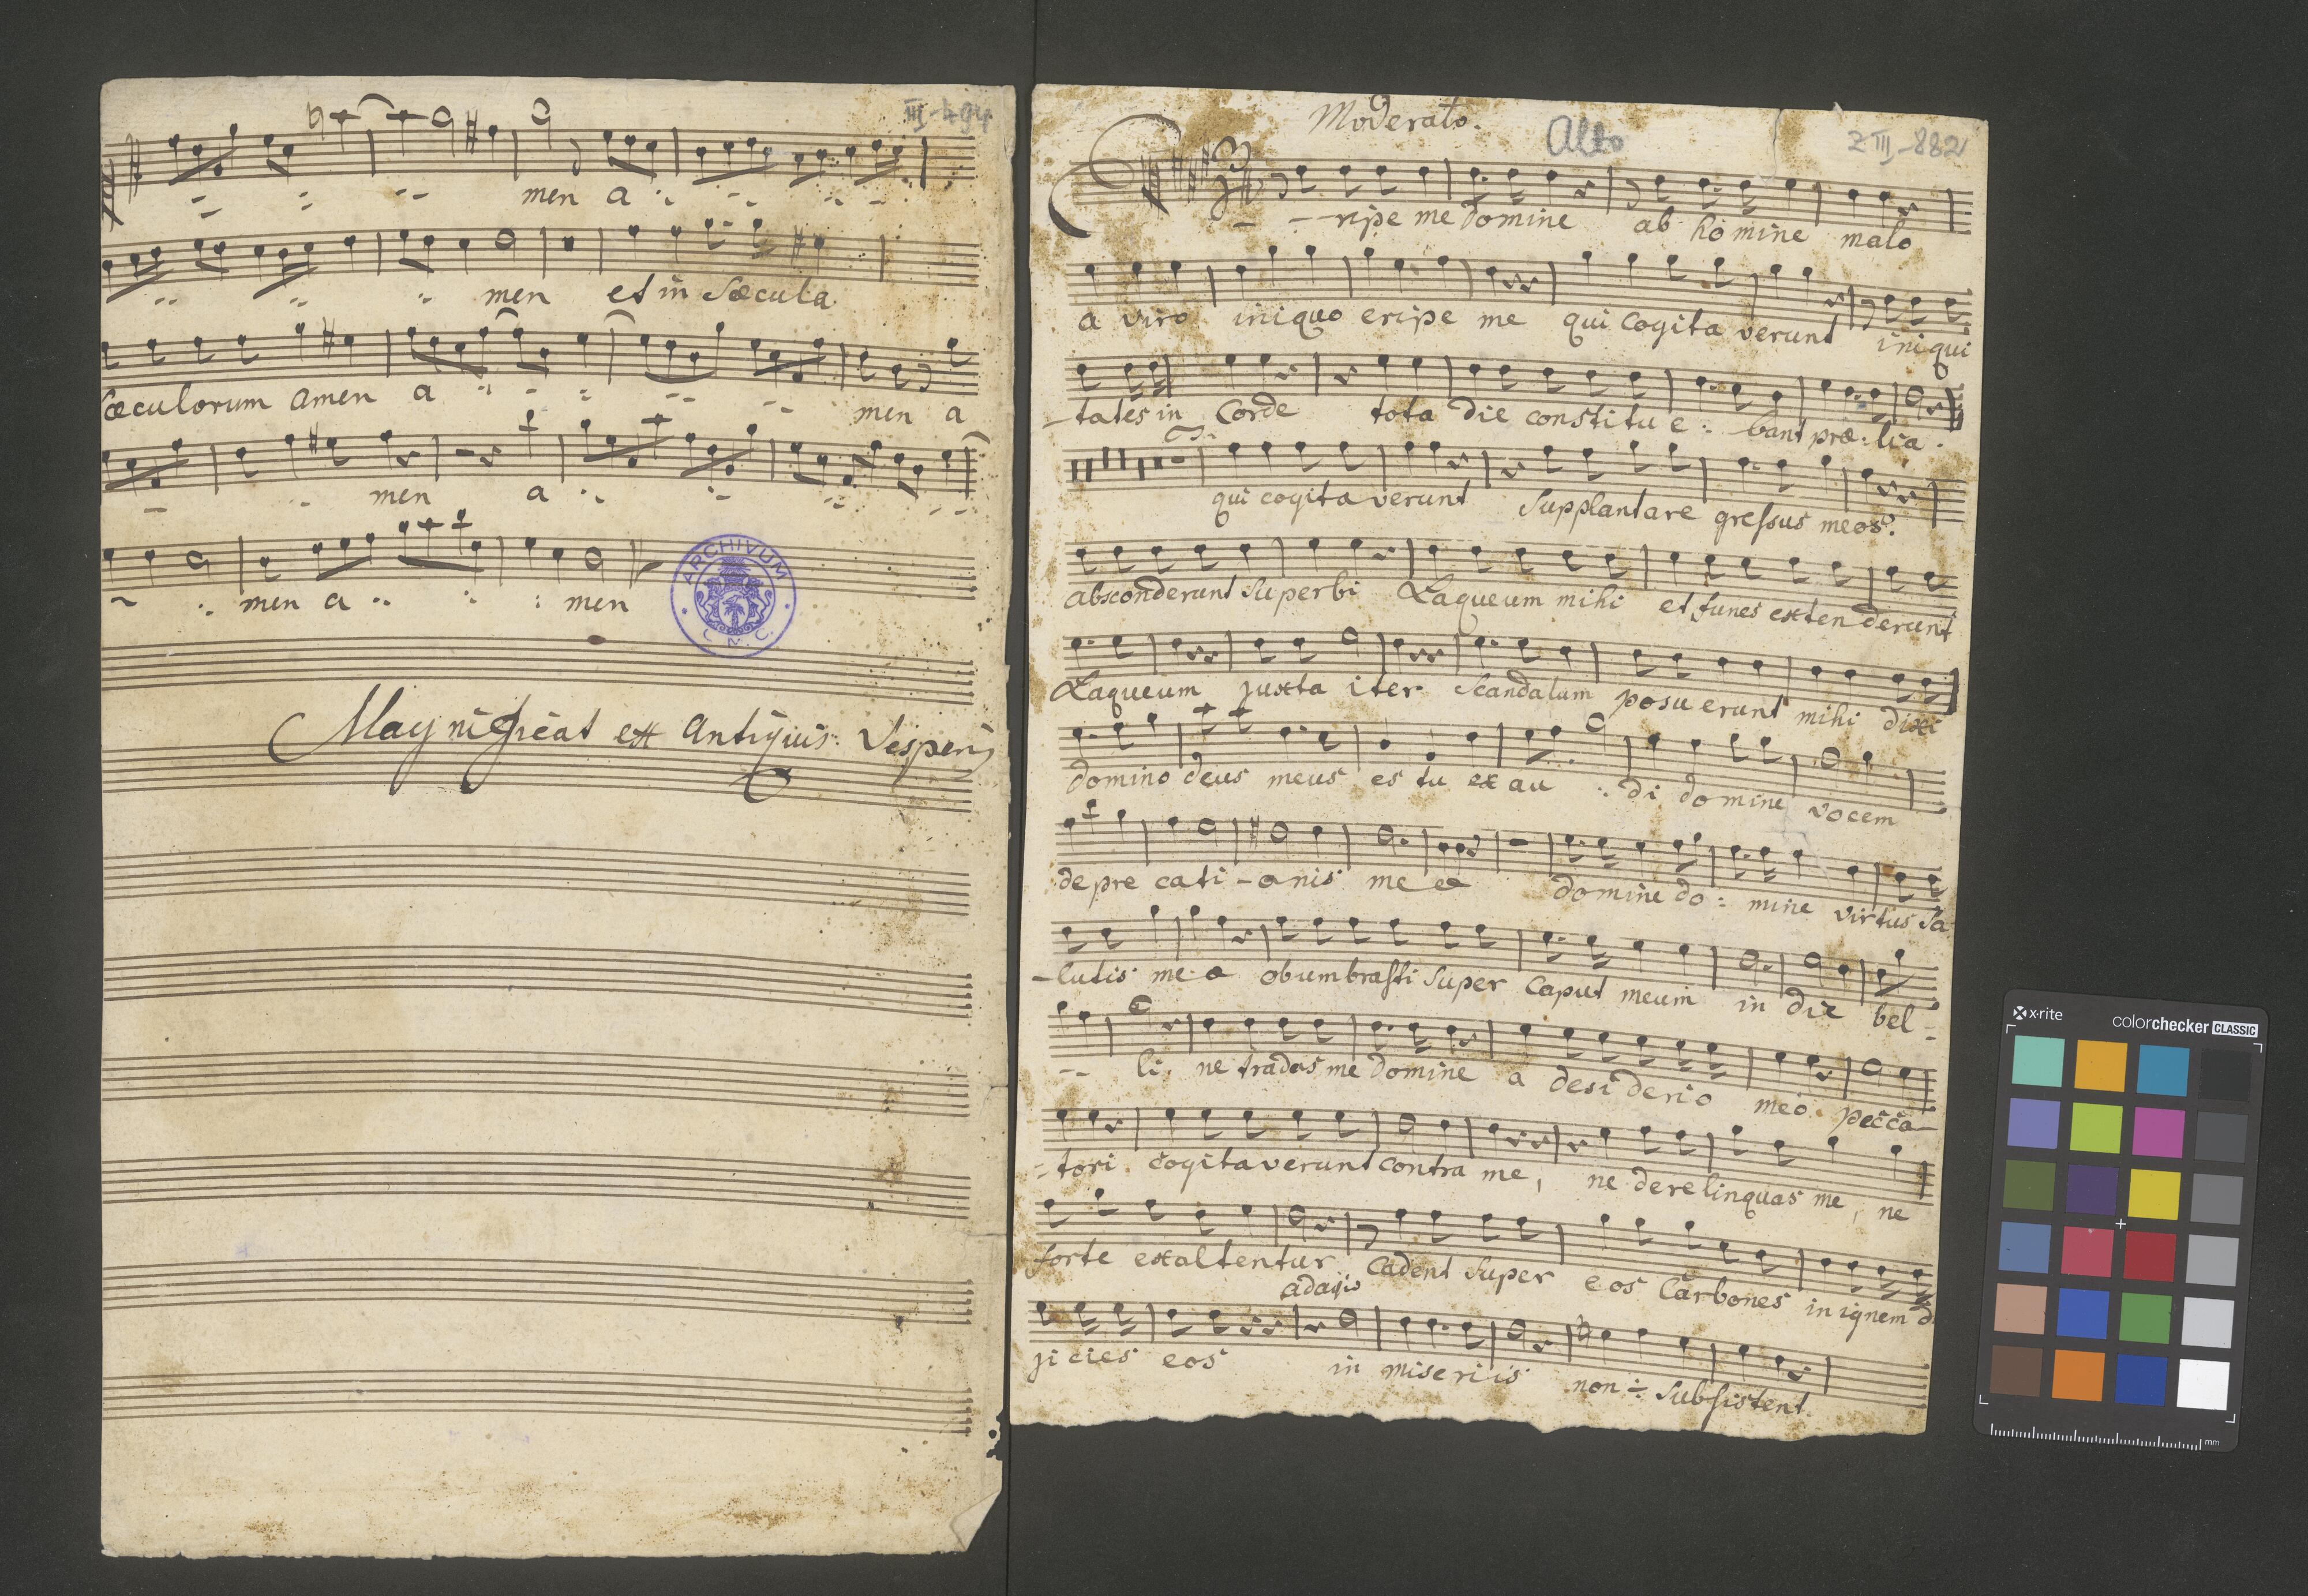 III-494
men a
men et in Sæcula
Sæculorum amen a men a
men a
men a men
ARCHIVUM
C. M. C.
Magnificat ex antiquis Vesperis
Moderato.
Alto
Z III-882
ripe me domine ab homine malo
a viro iniquo eripe me qui cogita verunt iniqui
-tates in Corde tota die constitu e : bant præ : lia .
qui cogita verunt Supplantare gressus meos
absconderunt superbi Laqueum mihi et funes extenderunt
Laqueum juxta iter Scandalum posu erunt mihi dixi
domino deus meus es tu ex au : di domine vocem
depre cati - onis me æ domine do : mine virtus Sa
-lutis me a obumbrasti super Caput meum in die bel -
li. ne tradas me domine a desiderio meo pecca-
-tori cogitaverunt contra me, ne derelinquas me, ne
forte exaltentur Cadent super eos Carbones in ignem d
adagio
ji cies eos in miseriis non subsistent.
x-rite
colorchecker CLASSIC
mm